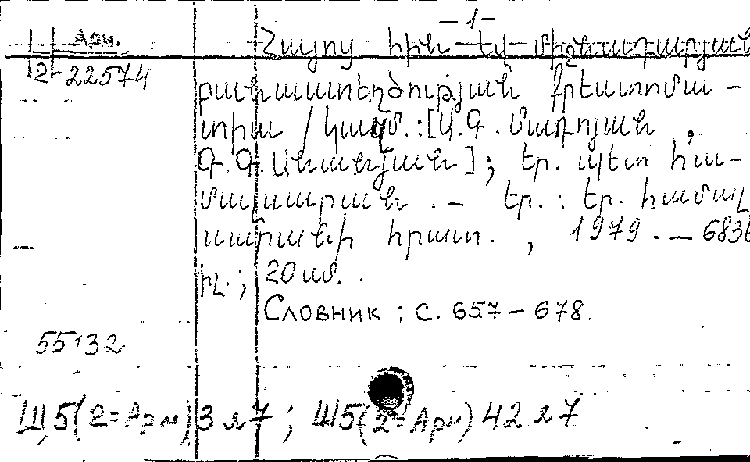 -1-
Арм.
Հայոց հին և միջնադարյան
2-22574
բանաստեղծության քրեստոմա-
տիա / կազմ.: [Ա.Գ. Մադոյան,
Գ.Գ. Անանյան]; Եր. պետ. հա-
մալսարան. - Եր.: Եր. համալ
սարանի հրատ., 1979. - 683է
իլ.; 20սմ.
Словник: с. 657-678.
55132
Ш5(2=Арм)3я7; Ш5(2=Арм)42я7